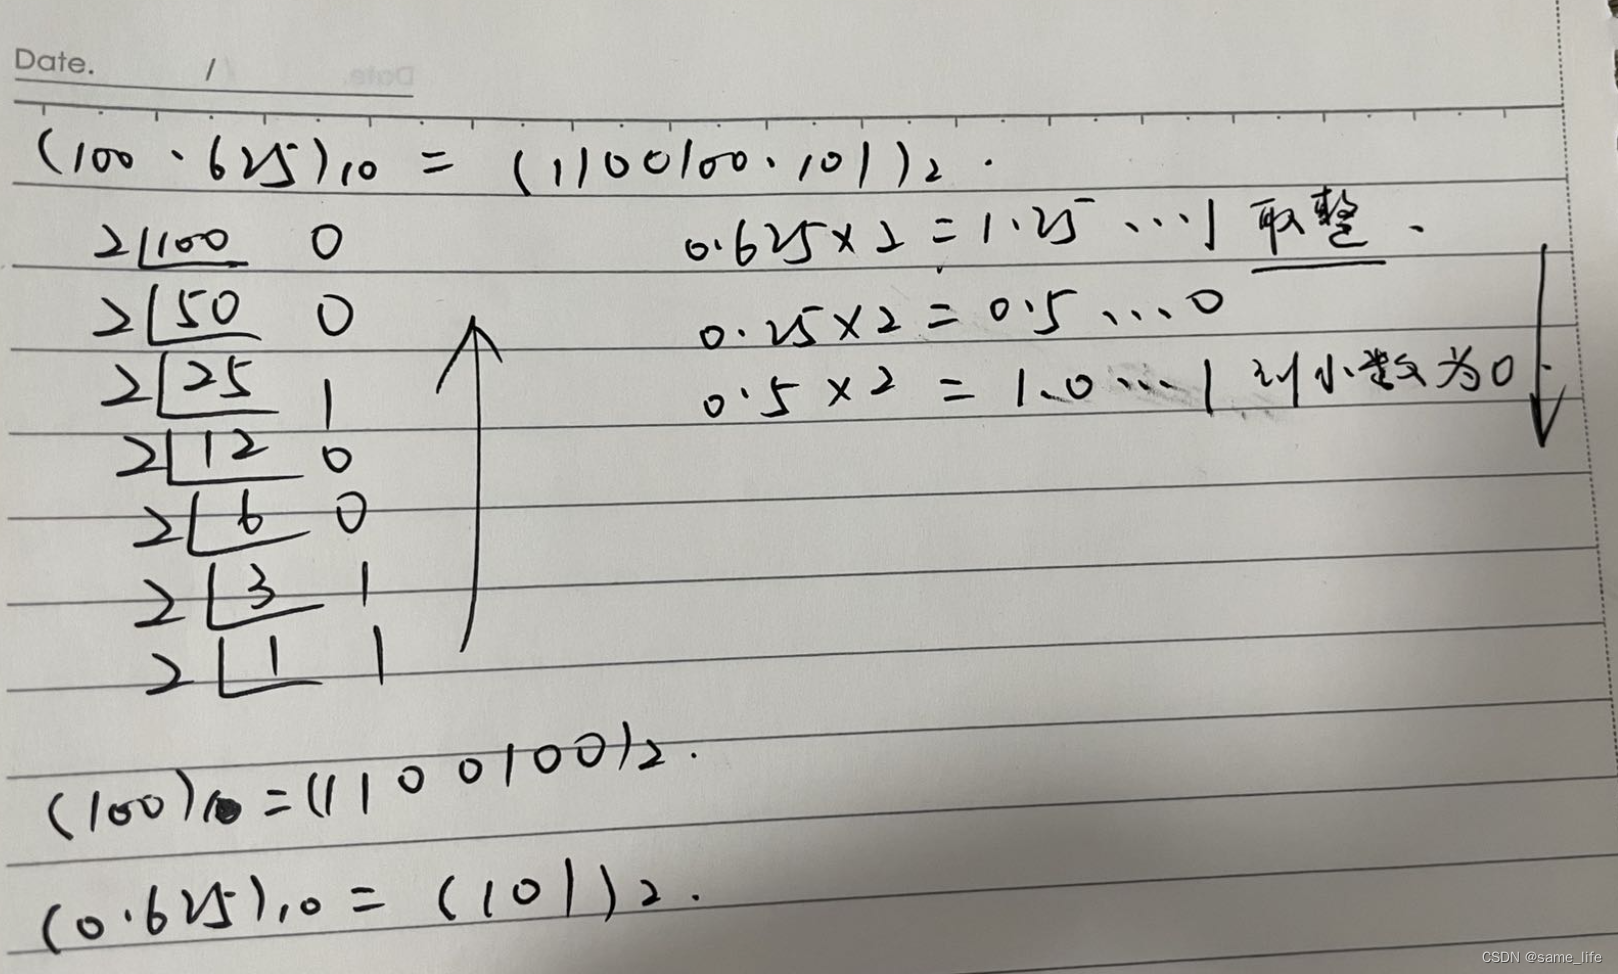 Date. /
(100.625)10 = (1100100.101)2.
2 100 0
2 50 0
2 25 1
2 12 0
2 6 0
2 3 1
2 1 1
0.625×2=1.25 …1 取整.
0.25×2=0.5 …0
0.5×2=1.0…1 到小数为0.
(100)10=(1100100)2.
(0.625)10=(101)2.
CSDN @same_life